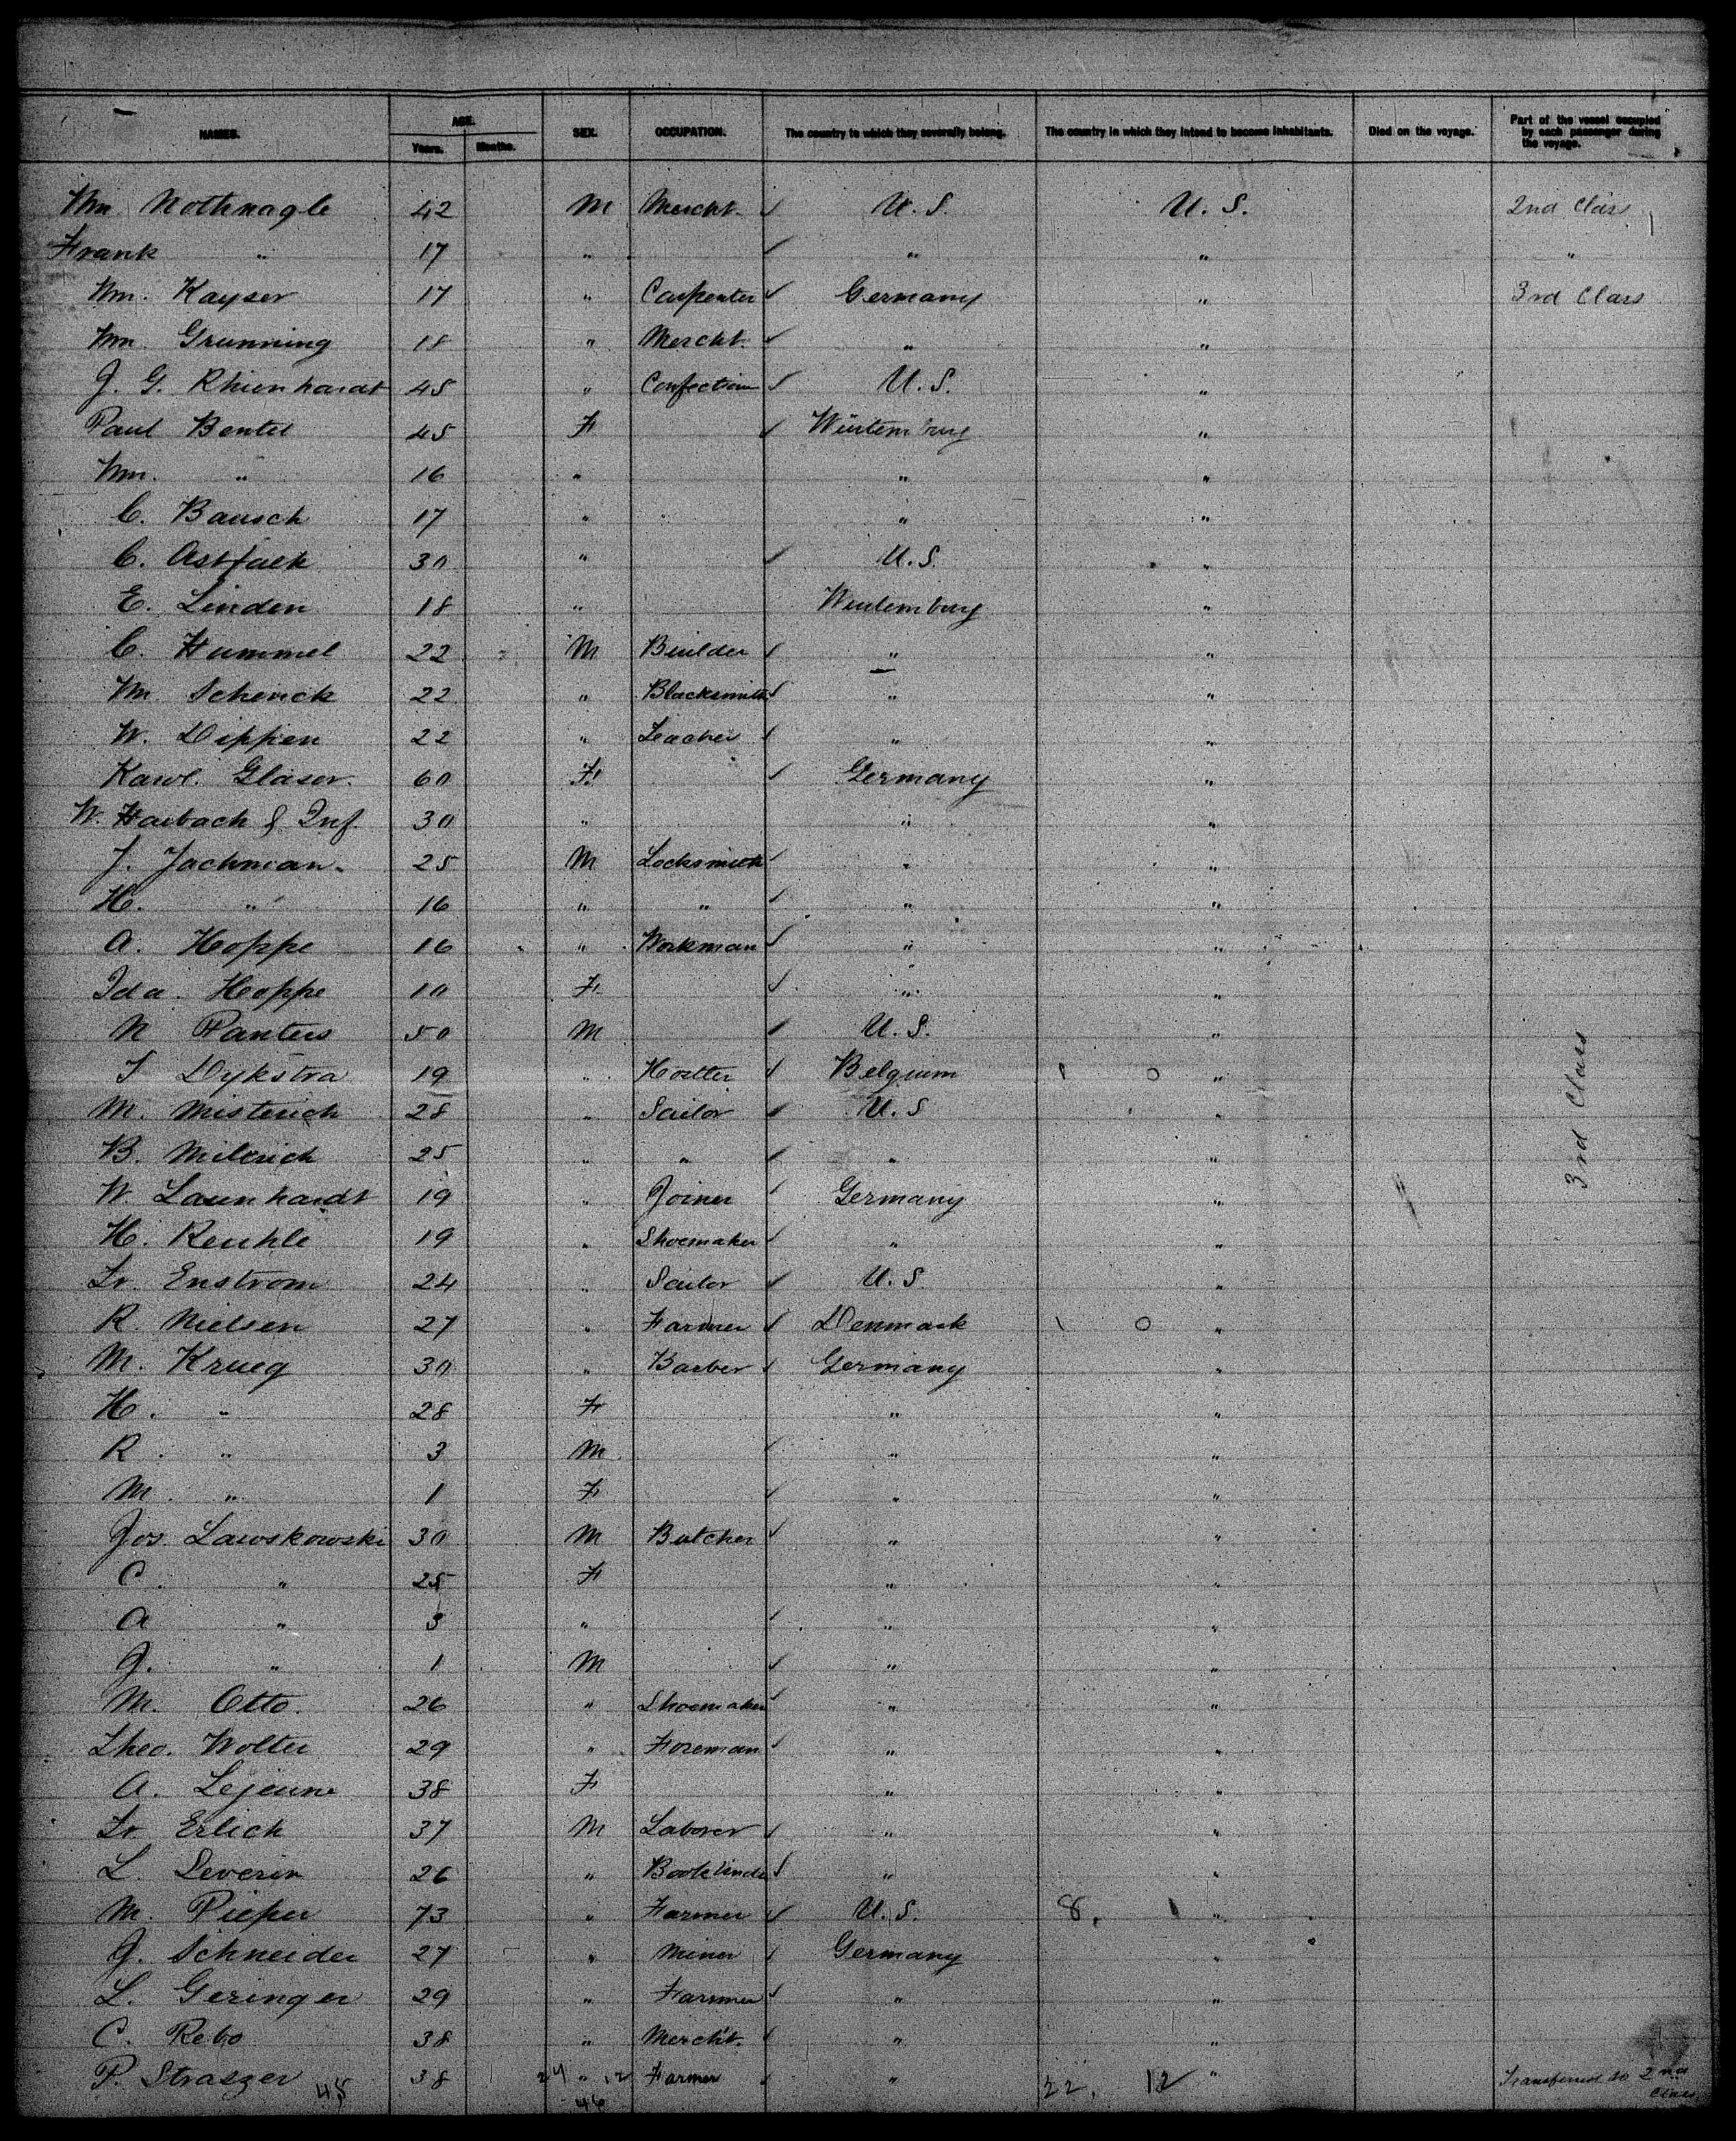 NAMES. AGE. Years. Months. SEX. OCCUPATION. The country to which they severally belong. The country in which they intend to become inhabitants. Died on the voyage. Part of the vessel occupied by each passenger during the voyage.
Wm. Nothnagle 42 M Mercht. ✓ U.S. U.S. 2nd Class
Frank " 17 " ✓ " " "
Wm. Kayser 17 " Carpenter ✓ Germany " 3rd Class
Wm. Grunning 18 " Mercht. ✓ " "
J. G. Rhienhardt 45 " Confection ✓ U.S. "
Paul Bentel 45 F ✓ Würtemburg "
Wm. " 16 " " "
C. Bausch 17 " " "
C. Astfalk 30 " ✓ U.S. "
E. Linden 18 " Wurtemburg "
C. Hummel 22 M Builder ✓ " "
Wm. Schenck 22 " Blacksmith ✓ " "
W. Dippen 22 " Teacher ✓ " "
Karol. Glaser. 60 F ✓ Germany "
W. Harbach & Inf. 30 " " "
J. Jachman. 25 M Locksmith ✓ " "
H. " 16 " " ✓ " "
A. Hoppe 16 " Workman ✓ " "
Ida. Hoppe 10 F ✓ " "
N Panters 50 M ✓ U.S. "
J Dykstra 19 " Hostler ✓ Belgium 1 0 "
M. Misterich 28 " Sailor ✓ U.S "
B. Milterich 25 " " ✓ " "
W. Launhardt 19 " Joiner ✓ Germany "
H. Reuhle 19 " Shoemaker ✓ " "
Fr. Enstrom 24 " Sailor ✓ U.S. "
R. Nielsen 27 " Farmer ✓ Denmark 1 0 "
M. Krueg 30 " Barber ✓ Germany "
H. " 28 F " "
R. " 3 M ✓ " "
M. " 1 F ✓ " "
Jos. Lawskowski 30 M Butcher ✓ " "
C. " 25 F " "
A " 3 " ✓ " "
J. " 1 M ✓ " "
M. Otto. 26 " Shoemaker ✓ " "
Theo. Wolter 29 " Foreman ✓ " "
A. Lejeune 38 F " "
Fr. Erlich 37 M Laborer ✓ " "
L. Severin 26 " Bookbinder ✓ " "
M. Pieper 73 " Farmer ✓ U.S. 8. 1 "
J. Schneider 27 " Miner ✓ Germany "
L. Geringer 29 " Farmer ✓ " "
C. Rebo 38 " Mercht. ✓ " "
P. Straszer 38 24 " 12 Farmer ✓ " 22, 12 " Transferred to 2nd Class
45 46
3rd Class